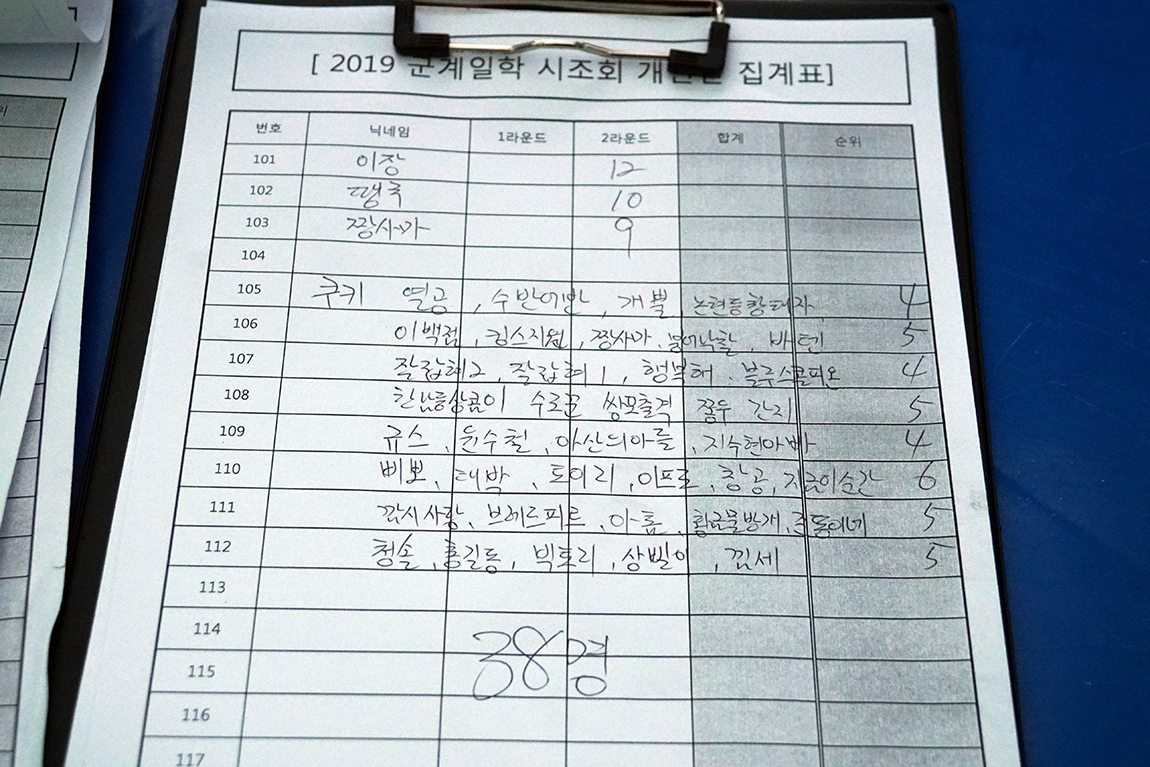 [ 2019 군계일학 시조회 개인전 집계표]
번호 닉네임 1라운드 2라운드 합계 순위
101 이장 12
102 땡국 10
103 짱사가 9
104
105 쿠키 열공 , 수반어반 , 개뿔 , 논현동황태자 , 4
106 이백점 , 킹스지원 , 짱사가 , 붕어낙할 , 바텐 5
107 잘랍혜2 , 잘랍혜1 , 행복해 , 블루스콜피오 4
108 찬남응상콤이 수로꾼 쌍포출격 짬두 간지 5
109 규스 , 윤수철 , 아산의아들 , 지수현아빠 4
110 삐뽀 , 대박 , 도이리 , 이프로 , 창공 , 지금이순간 6
111 낚시사랑 , 브레르피르 , 아홉 , 황금물방개 , 5
112 청솔 , 홍길동 , 빅토리 , 상빌이 , 낍세 5
113
114
38명
115
116
117